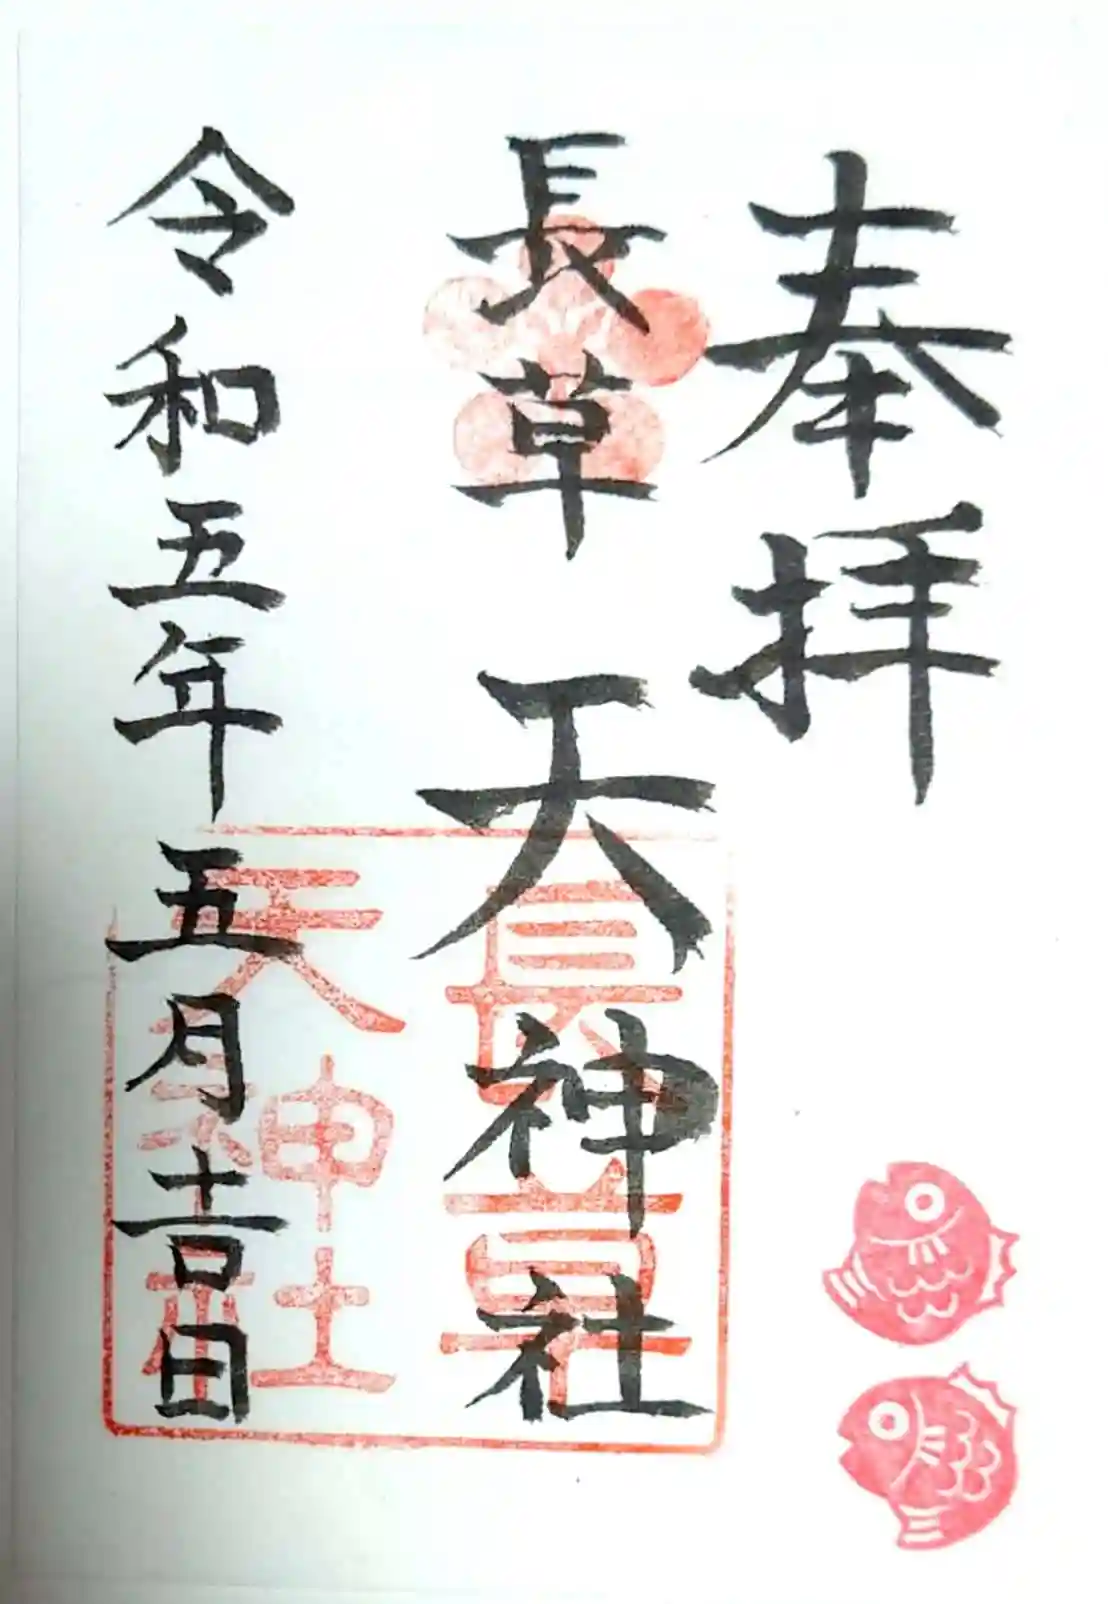 奉拝
長草 天神社
令和五年五月吉日
長草
天神社